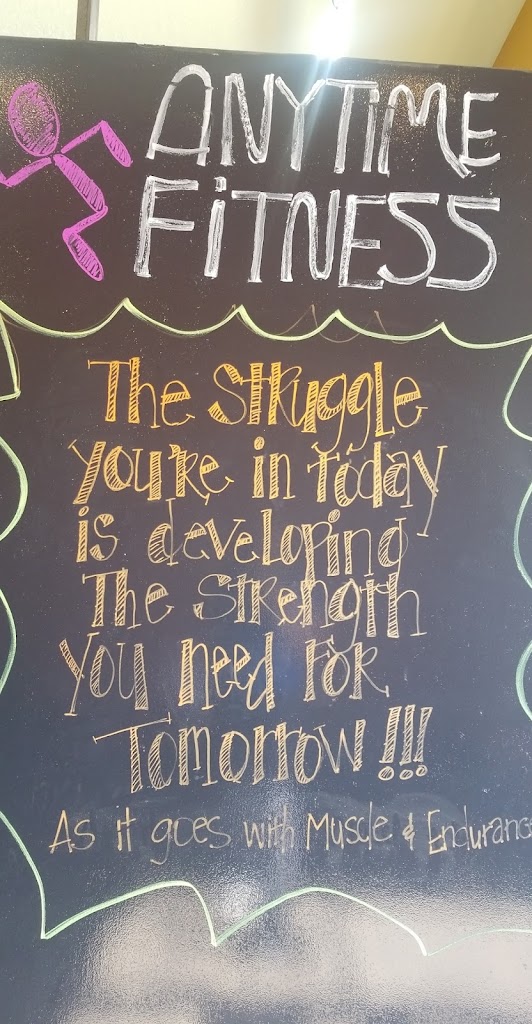 ANYTIME
FiTNESS
The Struggle
You're in today
is developing
The Strength
You need For
Tomorrow!!!
As it goes with Muscle & Endurance